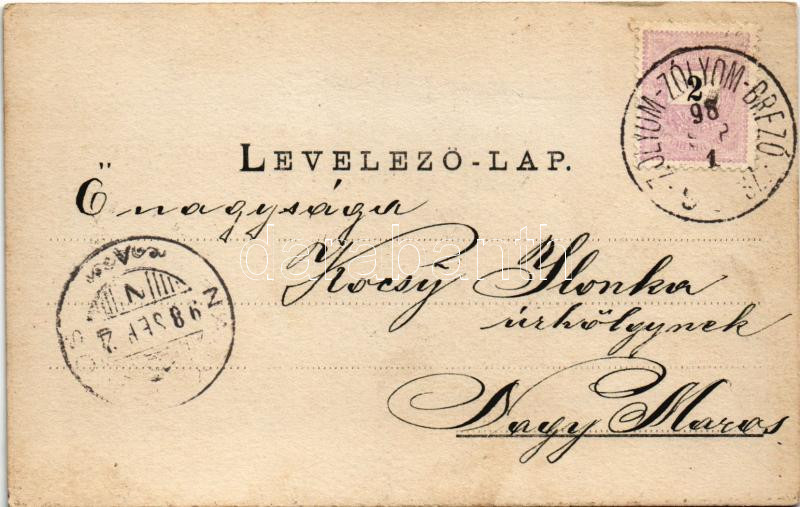 2
98
1
ZÓLYOM-ZÓLYOM-BREZÓ
LEVELEZŐ-LAP.
Őnagysága
Kocsý Ilonka
úrhölgynek
Nagy Maros
N
98 SEP 2
darabanth